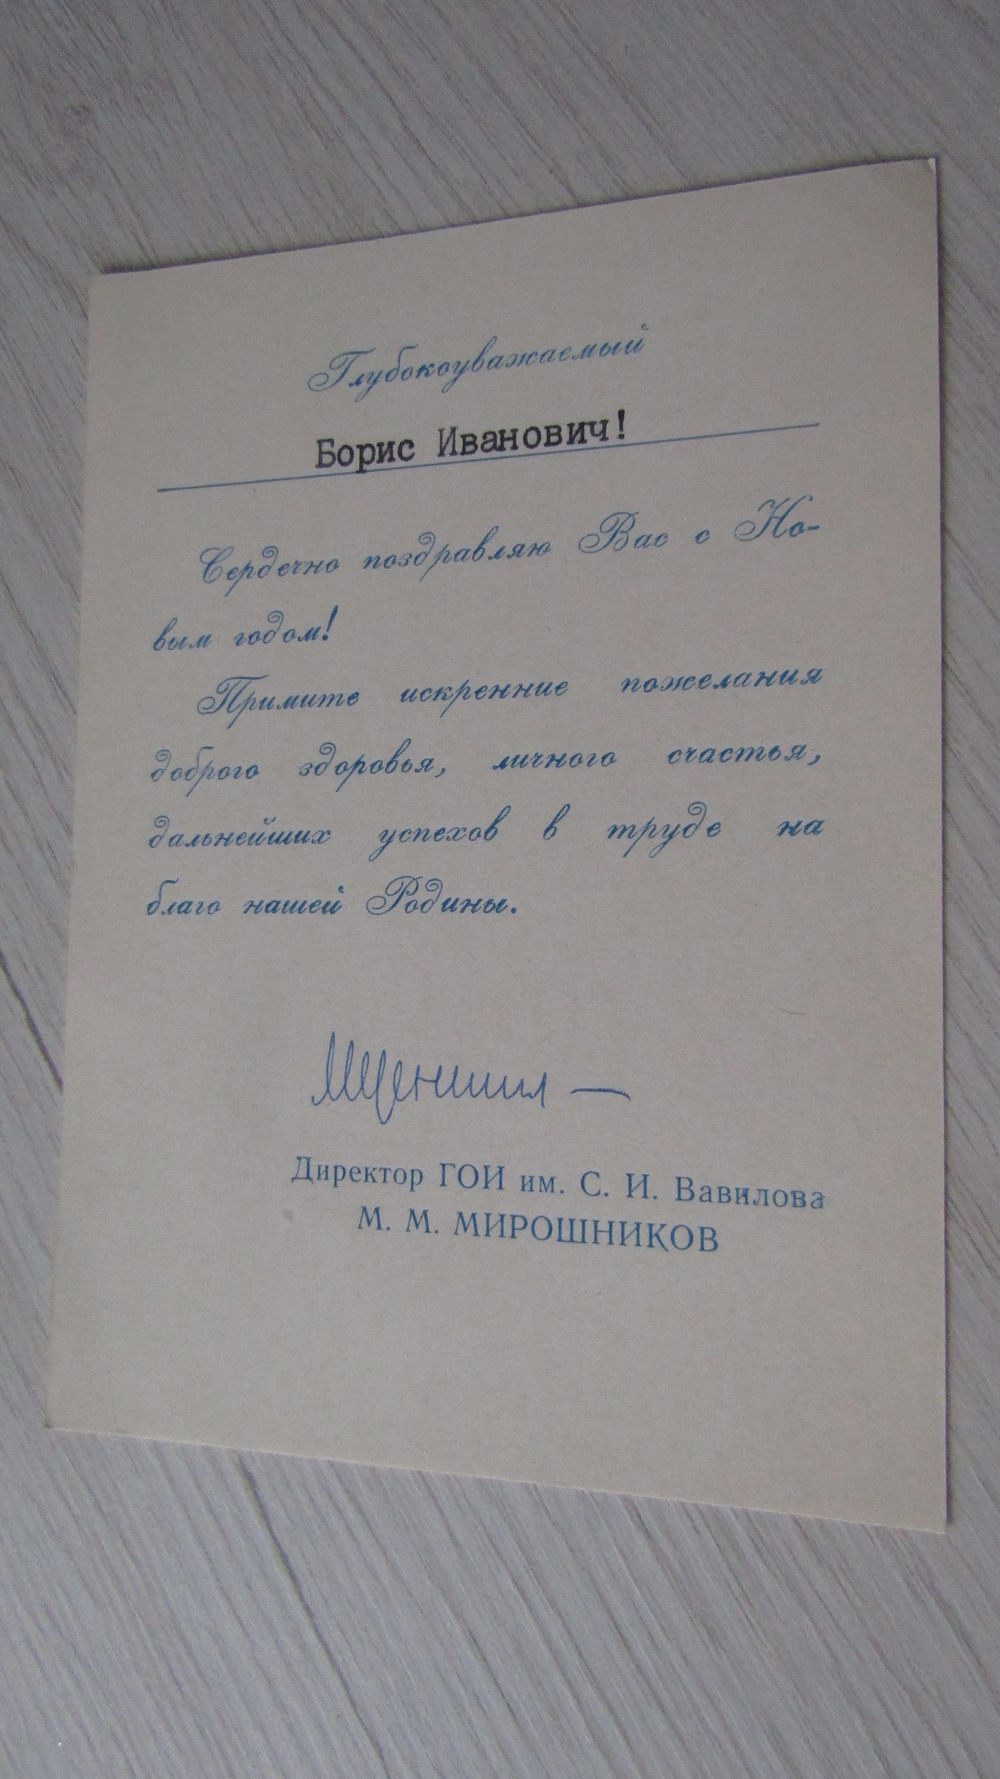 Глубокоуважаемый
Борис Иванович!
Сердечно поздравляю Вас с Но-
вым годом!
Примите искренние пожелания
доброго здоровья, личного счастья,
дальнейших успехов в труде на
благо нашей Родины.
Директор ГОИ им. С. И. Вавилова
М. М. МИРОШНИКОВ